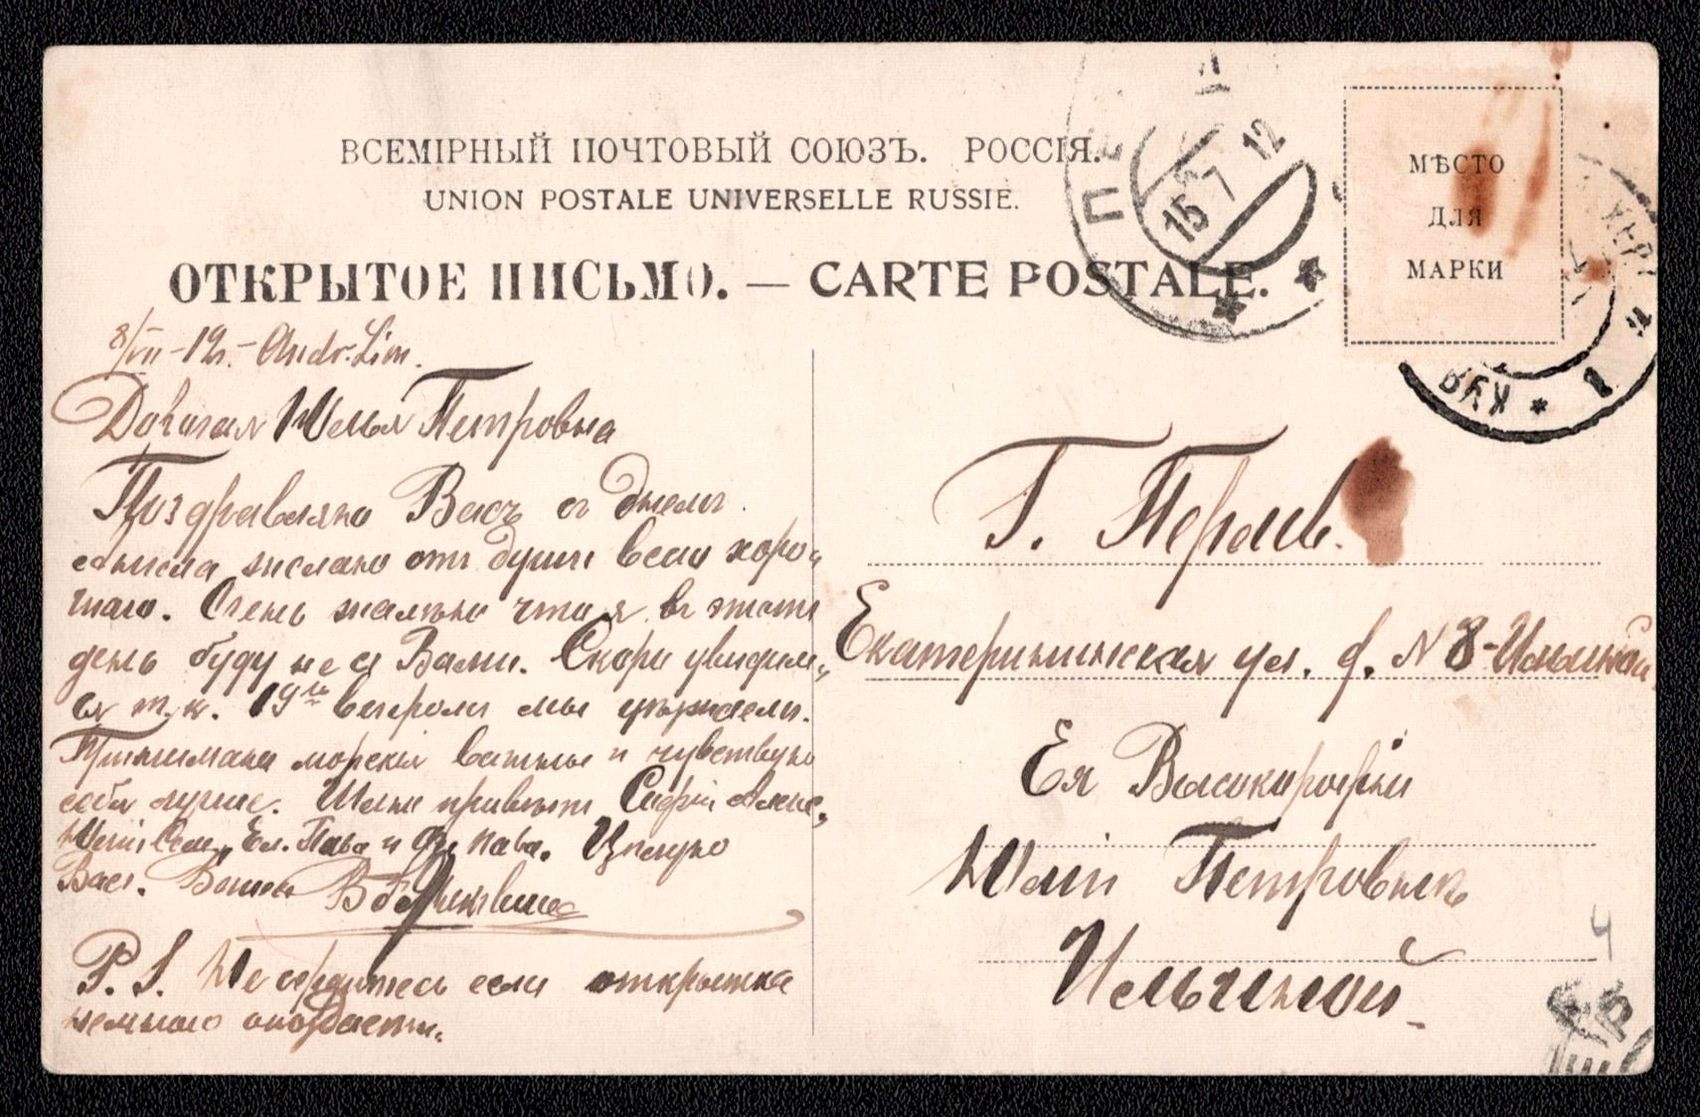 ВСЕМІРНЫЙ ПОЧТОВЫЙ СОЮЗЪ. РОССІЯ.
UNION POSTALE UNIVERSELLE RUSSIE.
ОТКРЫТОЕ ПИСЬМО. — CARTE POSTALE.
МѢСТО
ДЛЯ
МАРКИ
15 7 12
8/VII – 12г. –
Дорогая Юлія Петровна
Поздравляю Васъ съ днемъ
ангела желаю отъ души всего хоро-
шаго. Очень жалѣю что я въ этотъ
день буду не съ Вами. Скоро увидим-
ся т. к. 19го вечеромъ мы уѣзжаемъ.
Принимаю морскія ванны и чувствую
себя лучше. Шлю привѣтъ Софіи
Ел. Пав. и Цѣлую
Васъ. Ваша В
P. S. Не сердитесь если открытка
немного опоздаетъ.
Г. Пермь.
Екатерининская ул. д. № 8 – Ильиной
Ея Высокородію
Юліи Петровнѣ
Ильиной
4